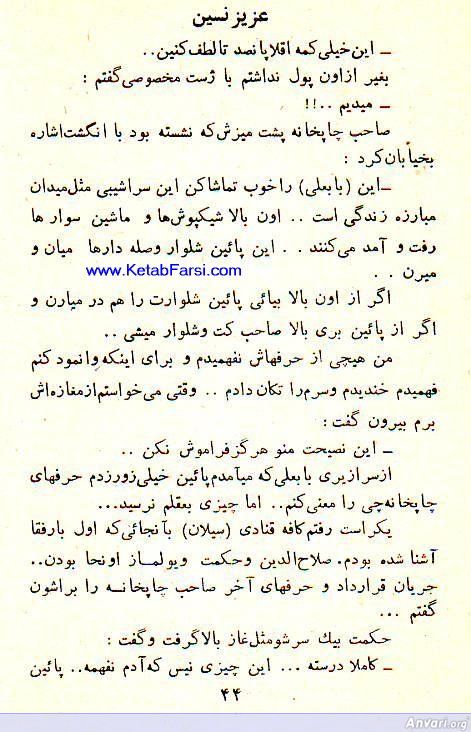 عزیز نسین
ـ این خیلی کمه اقلا پانصد تا لطف کنین..
بغیر از اون پول نداشتم با ژست مخصوصی گفتم :
ـ میدیم ..!!
صاحب چاپخانه پشت میزش که نشسته بود با انگشت اشاره
بخیابان کرد :
ـ این (بابعلی) را خوب تماشا کن این سراشیبی مثل میدان
مبارزه زندگی است .. اون بالا شیکپوش‌ها و ماشین سوار ها
رفت و آمد می‌کنند . . این پائین شلوار وصله دارها میان و
میرن . .
www.KetabFarsi.com
اگر از اون بالا بیائی پائین شلوارت را هم در میارن و
اگر از پائین بری بالا صاحب کت و شلوار میشی ..
من هیچی از حرفهاش نفهمیدم و برای اینکه وانمود کنم
فهمیدم خندیدم و سرم را تکان دادم .. وقتی می‌خواستم از مغازه‌اش
برم بیرون گفت :
ـ این نصیحت منو هرگز فراموش نکن ..
از سرازیری بابعلی که میآمدم پائین خیلی زور زدم حرفهای
چاپخانه‌چی را معنی کنم.. اما چیزی بعقلم نرسید...
یکراست رفتم کافه قنادی (سیلان) بآنجائی که اول بار رفقا
آشنا شده بودم. صلاح‌الدین و حکمت ویولماز اونجا بودن..
جریان قرارداد و حرفهای آخر صاحب چاپخانه را براشون
گفتم ...
حکمت بیك سرشو مثل غاز بالا گرفت و گفت :
ـ کاملا درسته ... این چیزی نیس که آدم نفهمه.. پائین
۴۴
Anvari.org